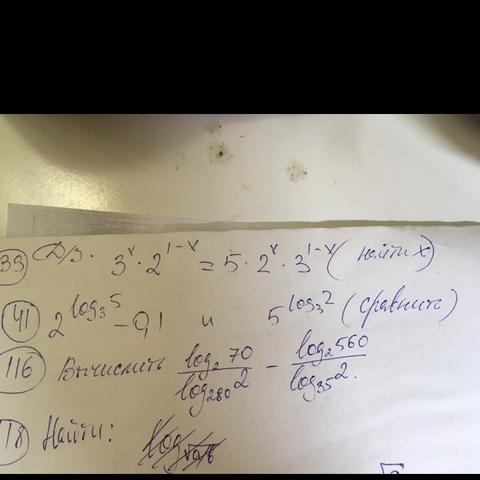 39 Д/з. 3^x · 2^{1-x} = 5 · 2^x · 3^{1-x} (найти x)
41 2^{log_3 5} - 0,1 и 5^{log_3 2} (сравнить)
116 Вычислить \frac{log_2 70}{log_{280} 2} - \frac{log_2 560}{log_{35} 2}.
18 Найти: